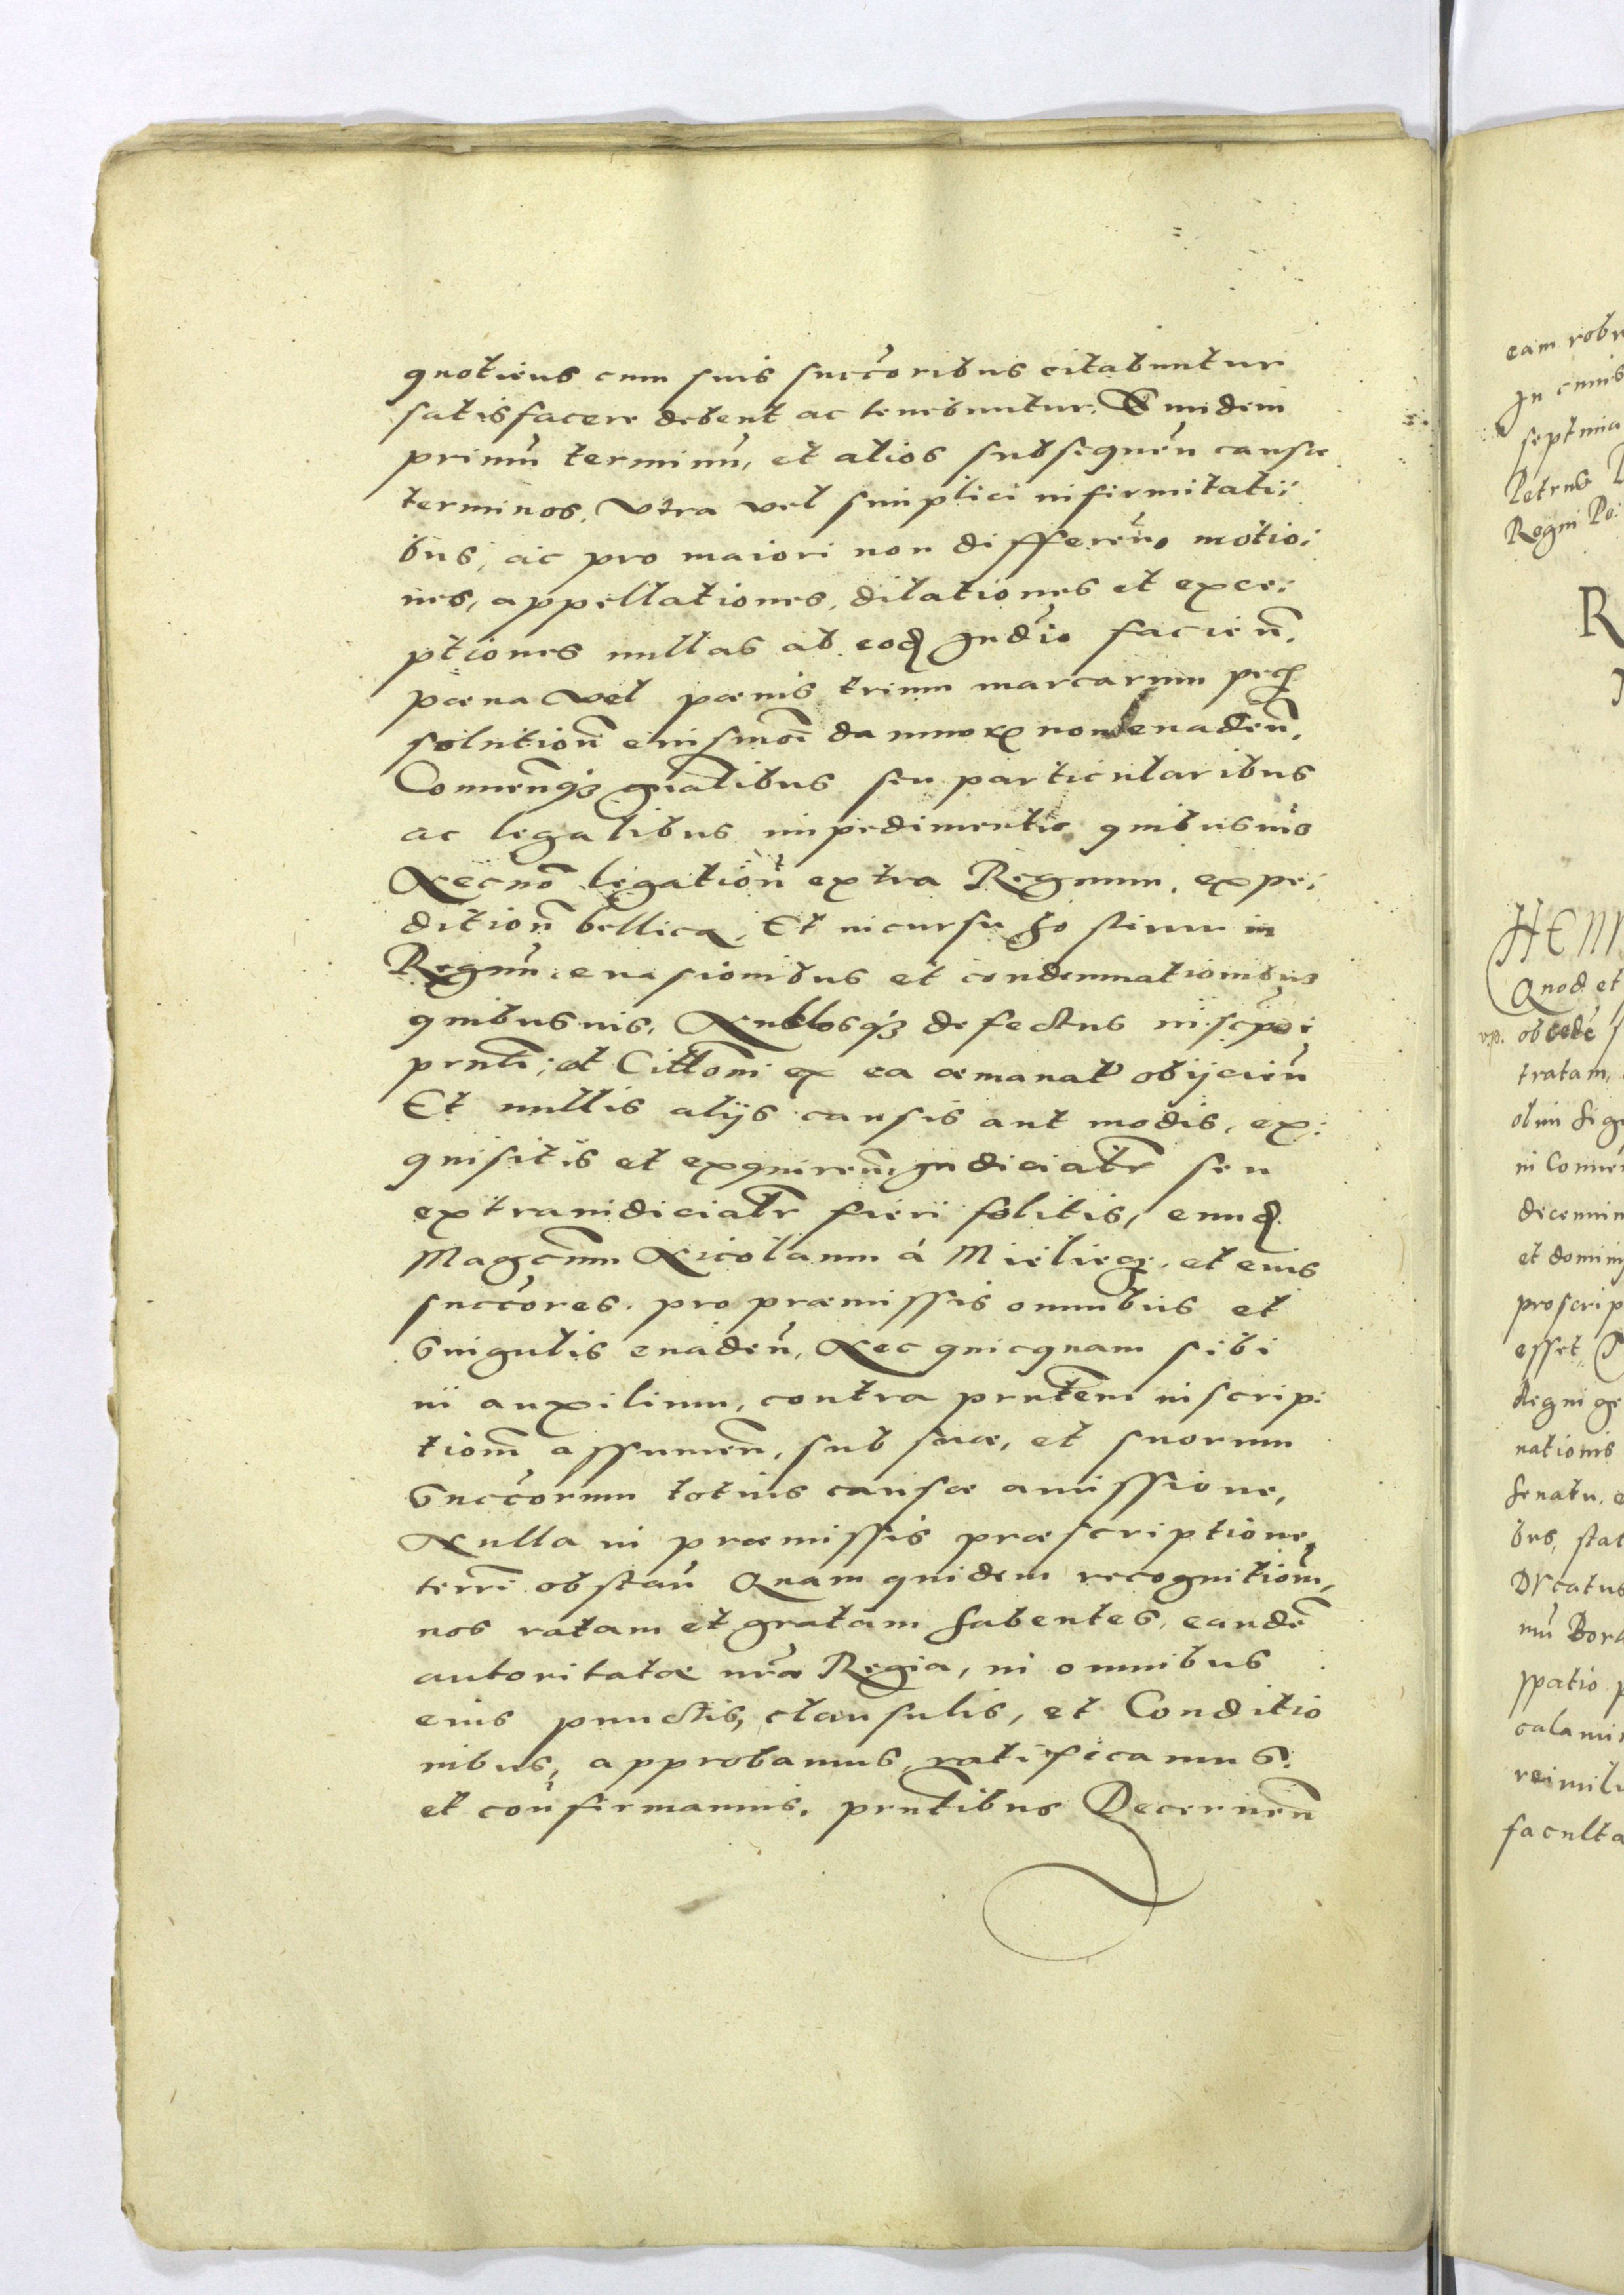 quotiens cum suis succōribus citabuntur
satisfacere debent ac tenebuntur. Eundem
primū terminū, et alios subsequēn causæ
terminos. Vera vel simplici infirmitati:
bus, ac pro maiori non differen. motio:
nes, appellationes, dilationes et exce:
ptiones nullas ab eod Iudio facien.
pœna vel pœnis trium marcarum
solutionē eiusmōi damnorum non euaden.
Conuenq3 gnalibus seu particularibus
ac legalibus impedimentis quibusuis
Necnō legationē extra Regnum, expe:
ditionē bellica, Et incursu hostium in
Regnū, euasionibus et condemnationibus
quibusuis, Nullosq3 defectus inscpōi
prnti, et Cittōni ex ea emanat obijcien
Et nullis alijs causis aut modis, ex:
quisitis et exquiren iudicialr seu
extraiudicialr fieri solitis, eund
Magcum Nicolaum à Mieliecz, et eius
succōres, pro præmissis omnibus et
singulis euaden, Nec quicquam sibi
in auxilium, contra prntem inscrip:
tionē assumen, sub suæ, et suorum
Succōrum totius causæ amissione,
Nulla in præmissis præscriptione
terrī obstan Quam quidem recognitionē,
nos ratam et gratam habentes, eandē
autoritatæ nrā Regia, in omnibus
eius punctis, clausulis, et Conditio
nibus, approbamus, ratificamus.
et confirmamus, prntibus Decernen
eam robu
In cuius
septima
Petrus
Regni Po:
R
HEN
Quod et
obcede
tratam,
olim Sig
in Conuen
decemin
et domini
proscrip
esset,
Regni ge
nationis
Senatu, e
bus, stat
Ducatus
mū Bora
spatio p
calami
reimilu
faculta